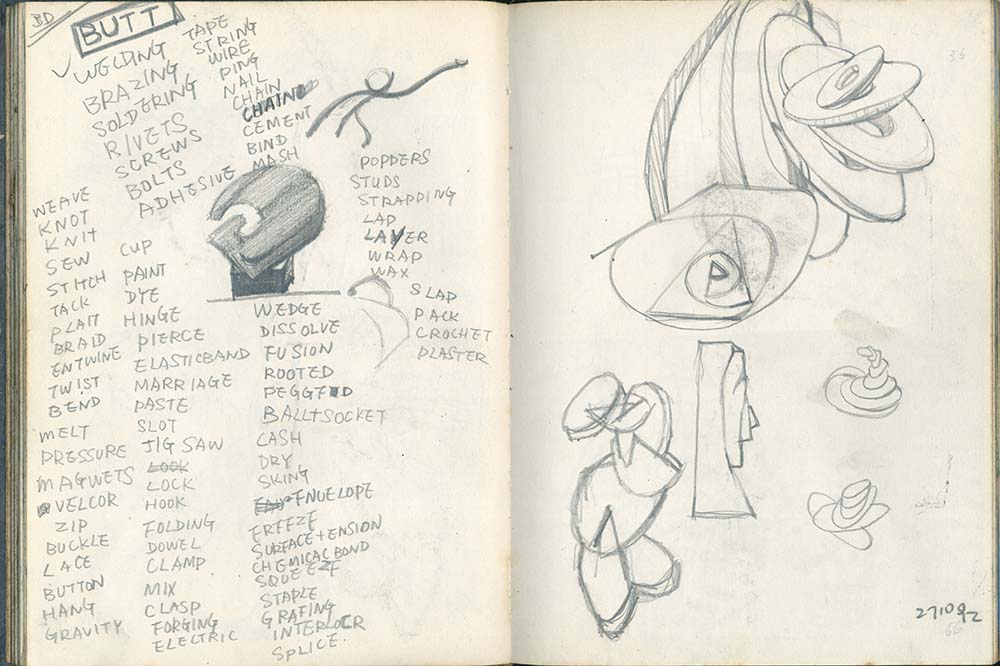 BD
BUTT
WELDING
BRAZING
SOLDERING
RIVETS
SCREWS
BOLTS
ADHESIVE
TAPE
STRING
WIRE
PING
NAIL
CHAIN
CHAIN
CEMENT
BIND
MASH
WEAVE
KNOT
KNIT
SEW
STITCH
TACK
PLAIT
BRAID
ENTWINE
TWIST
BEND
MELT
PRESSURE
MAGWETS
VELCOR
ZIP
BUCKLE
LACE
BUTTON
HANG
GRAVITY
CUP
PAINT
DYE
HINGE
PIERCE
ELASTICBAND
MARRIAGE
PASTE
SLOT
JIG SAW
LOOK
LOCK
HOOK
FOLDING
DOWEL
CLAMP
MIX
CLASP
FORGING
ELECTRIC
WEDGE
DISSOLVE
FUSION
ROOTED
PEGGED
BALL+SOCKET
CASH
DRY
SKING
ENVELOPE
FREEZE
SURFACE TENSION
CHEMICAL BOND
SQUEEZE
STAPLE
GRAFING
INTERLOCR
SPLICE.
POPPERS
STUDS
STRAPPING
LAP
LAYER
WRAP
WAX
SLAP
PACK
CROCHET
PLASTER
36
P
271092
66